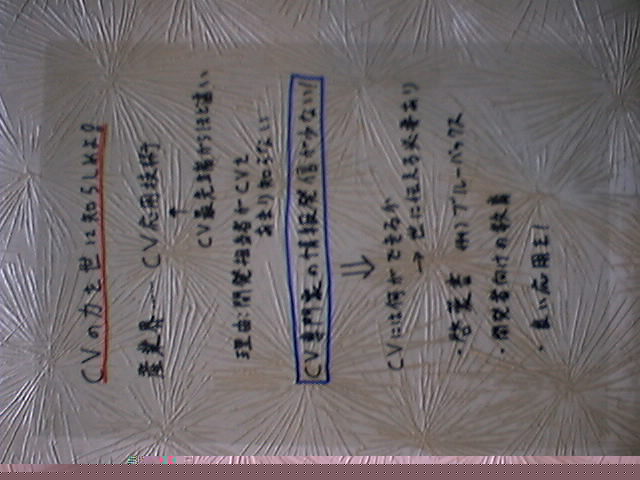 CVの力を世に知らしめよ
産業界…… CV応用技術
↑
CV最先端からほど遠い
理由:開発担当者がCVを
あまり知らない
CV専門家の情報発信が少ない!
⇓
CVには何ができるか
→ 世に伝える必要あり
・啓蒙書 例)ブルーバックス
・開発者向けの教書
・良い応用を!